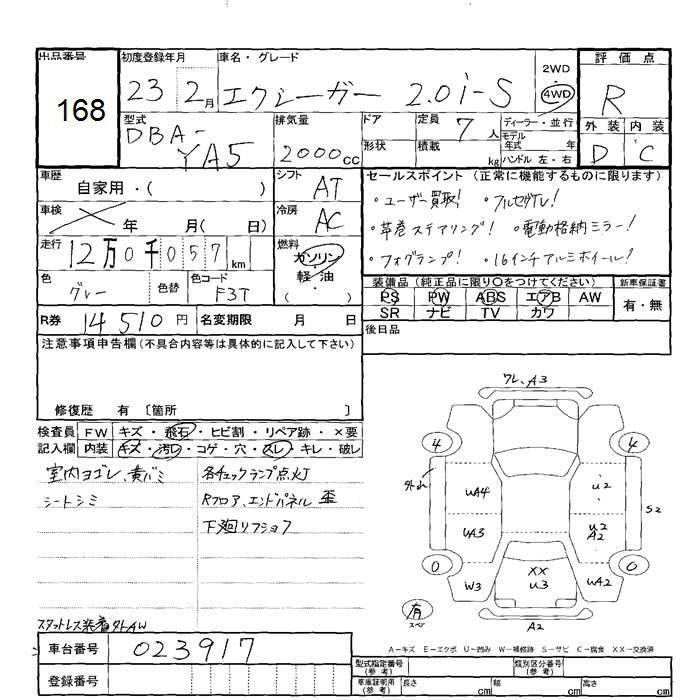 出品番号 初度登録年月 車名・グレード 2WD・ 評価点
168 23 2月 エクシーガー 2.0i-S 4WD R
型式 排気量 ドア 定員 7人 ディーラー・並行 外装 内装
DBA-YA5 2000cc 形状 積載 kg モデル年式 年 ハンドル 左・右 D C
車歴 自家用・( ) シフト AT セールスポイント (正常に機能するものに限ります)
車検 年 月( 日) 冷房 AC ・ユーザー買取! ・フルセグTV!
・革巻ステアリング! ・電動格納ミラー!
走行 12万0千057km 燃料 ガソリン・軽油・( ) ・フォグランプ! ・16インチアルミホイール!
色 グレー 色替 色コード F3T 装備品 (純正品に限り○をつけてください) 新車保証書
PS PW ABS エアB AW 有・無
R券 14510円 名変期限 月 日 SR ナビ TV カワ
後日品
注意事項申告欄(不具合内容等は具体的に記入して下さい)
修復歴 有 〔箇所 〕
検査員 FW キズ・飛石・ヒビ割・リペア跡・×要
記入欄 内装 キズ・汚レ・コゲ・穴・スレ・キレ・破レ
室内ヨゴレ、黄バミ 各チェックランプ点灯
シートシミ Rフロア、エンドパネル歪
下廻りフショク
ワレ、A3
4 4
UA4 U2
S2
UA3 U2 A2
0 0
W3 XX U3 UA2
有
スペ
A2
スタットレス装着 外AW
A−キズ E−エクボ U−凹み W−補修跡 S−サビ C−腐食 XX−交換済
車台番号 023917 型式指定番号(参考) 類別区分番号(参考)
登録番号 車庫証明用(参考) 長さ cm 幅 cm 高さ cm